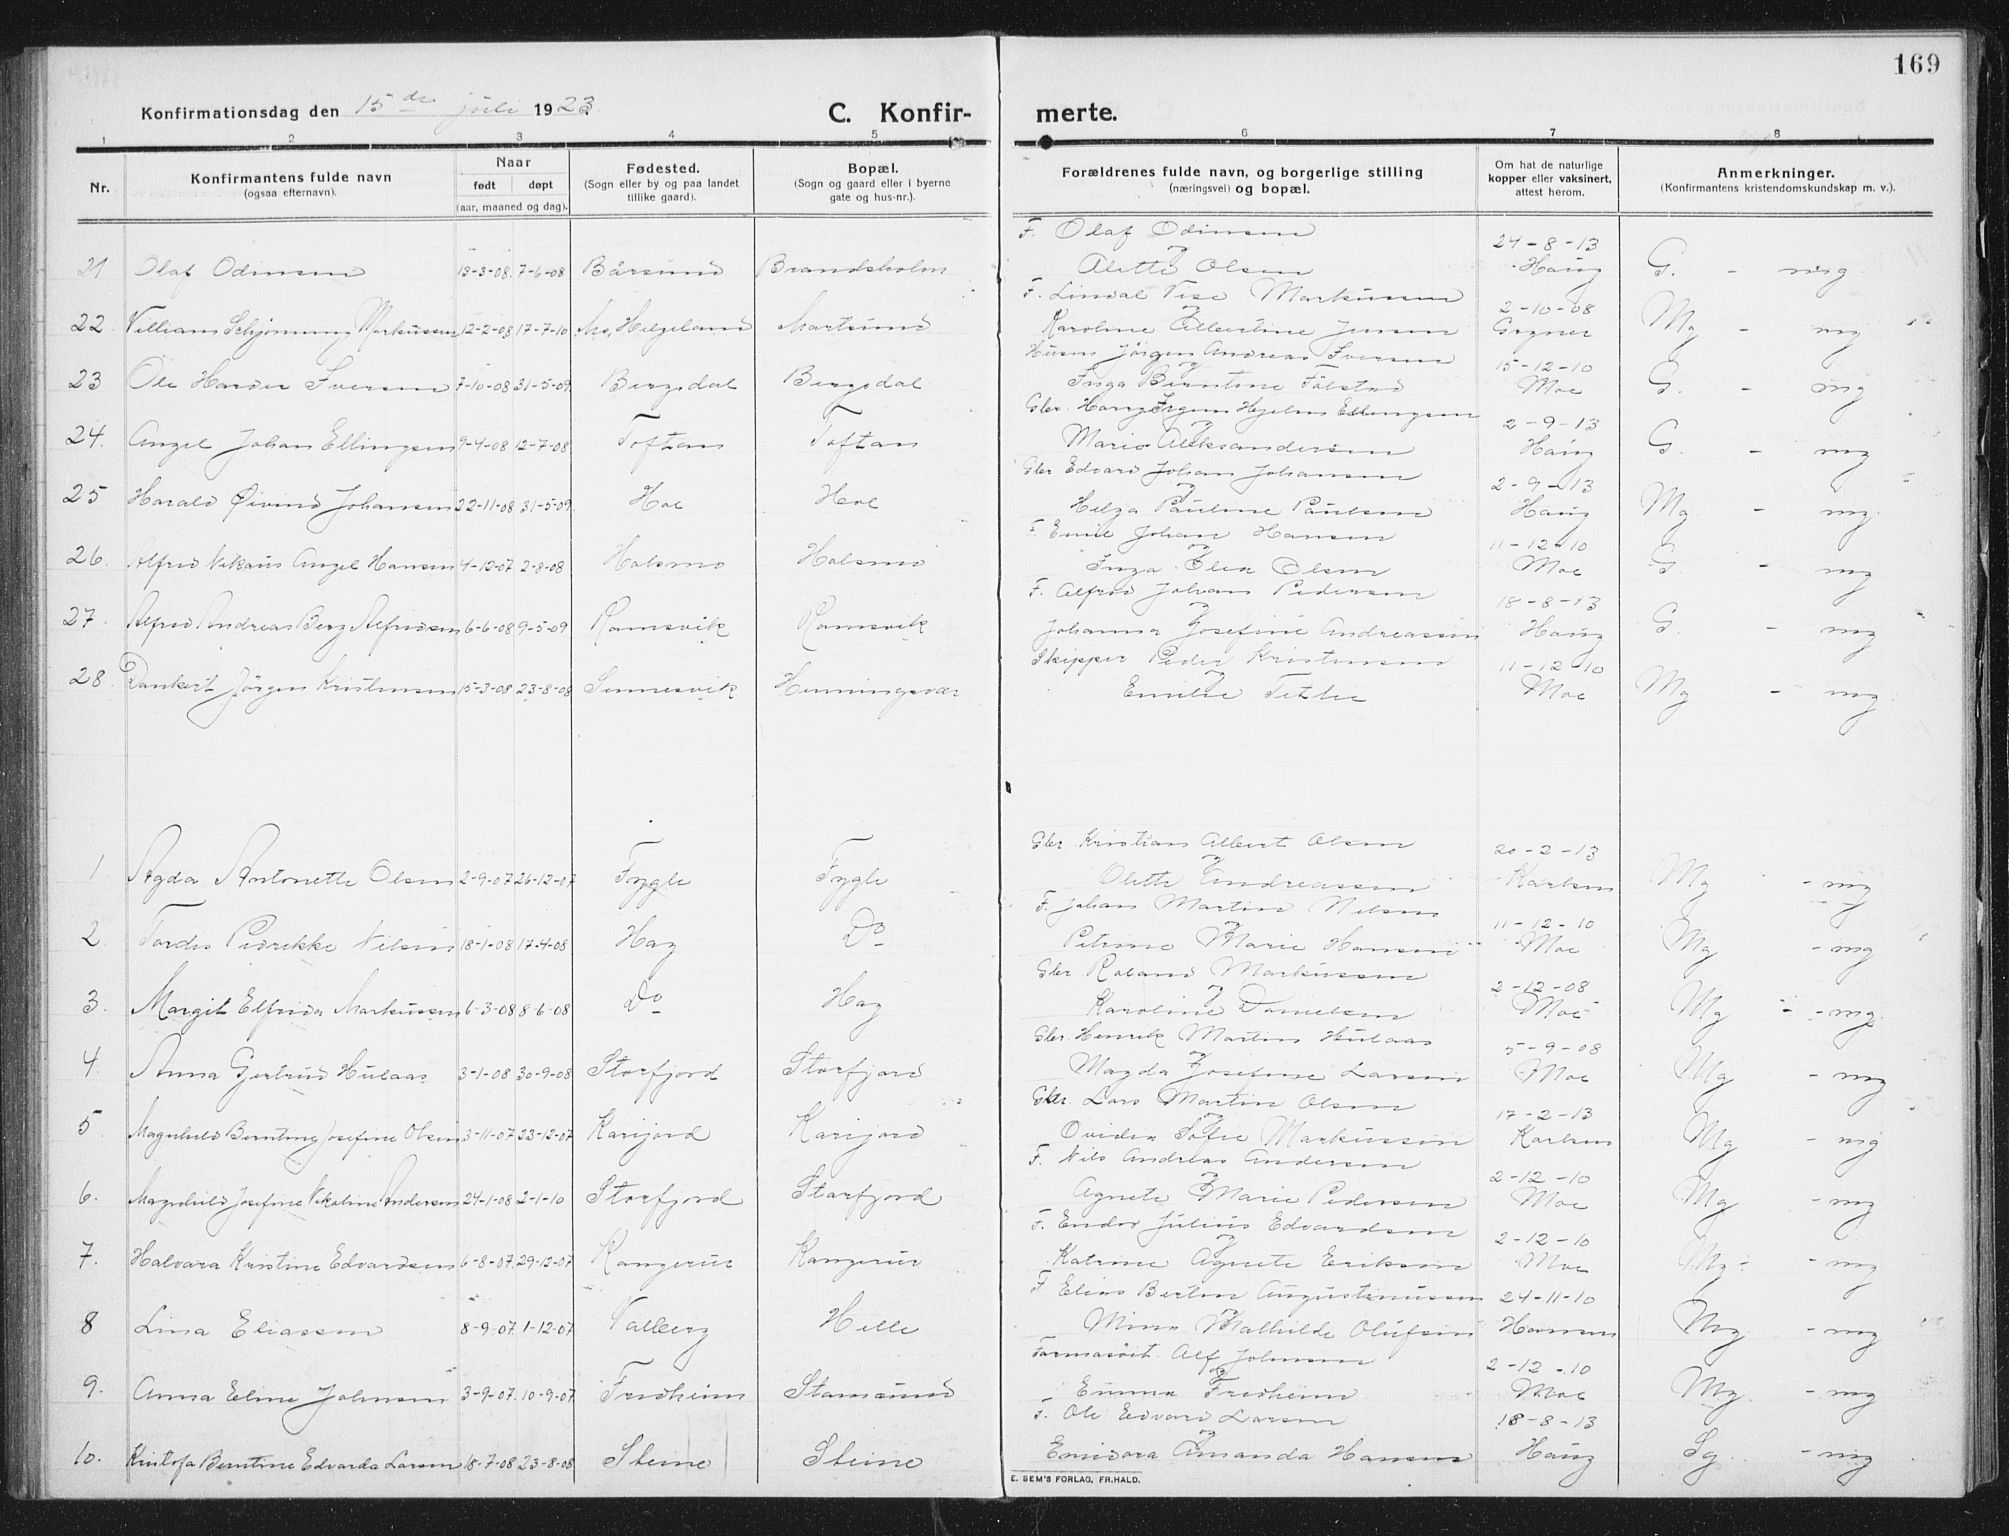 169
Konfirmationsdag den 15 de juli 1923.
C. Konfir- merte.
1 2 3 4 5 6 7 8
Nr.
Konfirmantens fulde navn
(ogsaa efternavn).
Naar
født døpt
(aar, maaned og dag).
Fødested.
(Sogn eller by og paa landet
tillike gaard).
Bopæl.
(Sogn og gaard eller i byerne
gate og hus-nr.).
Forældrenes fulde navn, og borgerlige stilling
(næringsvei) og bopæl.
Om hat de naturlige
kopper eller vaksinert,
attest herom.
Anmerkninger.
(Konfirmantens kristendomskundskap m. v.).
F. Olaf Odinsen 24-8-13
21 Olaf Odinsen 13-3-08. 7-6-08 Bårsund Brandsholm og Alette Olsen Haug G. - mg
F. Lindal Markussen 2-10-08
22. Markussen 12-2-08 17-7-10 Mo, Helgeland Mortsund Karoline Albertine Jensen Mg - mg
Jørgen Andreas Iversen 15-12-10
23 Ole Iversen 7-10-08 31-5-09 Bergsdal Bergsdal og Inga Berntine Moe G. - mg
Gbr. Harry Hjelm Ellingsen 2-9-13
24. Angel Johan Ellingsen 9-4-08 12-7-08 Toftan Toftan og Marie Aleksandersen Haug G - mg
Gbr. Edvard Johan Johansen 2-9-13
25 Harald Øivind Johansen 22-11-08 31-5-09 Hol Hol og Helga Pauline Paulsen Haug Mg - mg.
F. Emil Johan Hansen 11-12-10
26. Alfred Nikaus Angel Hansen 4-12-07 2-8-08 Holsmo Holsmo og Inga Olea Olsen Moe G. - mg
F. Alfred Johan Pedersen 18-8-13
27. Alfred Andreas Berg Alfredsen 6-6-08 9-5-09 Ramsvik Ramsvik og Johanna Josefine Andreassen Haug G. - mg
Skipper Peder Kristensen 11-12-10
28. Dankert Jørgen Kristensen 15-3-08 23-8-08 Sennesvik Henningsvær og Emilie Tetlie Moe Mg - mg
Gbr. Kristian Albert Olsen 20-2-13
1 Agda Antonette Olsen 2-9-07 26-12-07 Fygle Fygle og Olette Andreassen Karlsen Mg - mg
F. Johan Martin Nilsen 11-12-10
2. Tordis Pedrikke Nilsen 18-1-08 17-4-08 Hag Do og Petrine Marie Hansen Moe Mg - mg
Gbr. Roland Markussen 2-12-08
3. Margit Elfrida Markussen 6-3-08 8-6-08 Do Hag og Karoline Danielsen Moe Mg - mg.
Gbr. Henrik Martin Hulaas 5-9-08
4. Anna Gertrud Hulaas 3-1-08 30-9-08 Storfjord Storfjord og Magda Josefine Larsen Moe Mg - mg
Gbr. Lars Martin Olsen 17-2-13
5. Magnhild Berntine Josefine Olsen 3-11-07 23-12-07 Karijord Karijord og Ovidia Sofie Markussen Karlsen Mg - mg
F. Nils Andreas Andersen 2-12-10
6. Magnhild Josefine Nikoline Andersen 24-1-08 2-1-10 Storfjord Storfjord og Agnete Marie Pedersen Moe Mg - mg
F. Endor Julius Edvardsen 2-12-10
7. Halvara Kristine Edvardsen 6-8-07. 29-12-07 Rangerur Rangerur og Katrine Agnete Eriksen Moe Mg - mg
F Elias Bertin Augustinussen 24-11-10
8 Lina Eliassen 8-9-07. 1-12-07 Valberg Helle og Mina Mathilde Olufsen Hansen Mg - mg
Farmasöit. Alf Johnsen 2-12-10
9. Anna Eline Johnsen 3-9-07. 10-9-07 Fredheim Stamsund og Emma Fredheim Moe Mg. - mg
F. Ole Edvard Larsen 18-8-13
10. Kristofa Berntine Edvarda Larsen 18-7-08 23-8-08 Steine Steine og Emisora Amanda Hansen Haug Sg - mg
E. SEM'S FORLAG, FR.HALD.